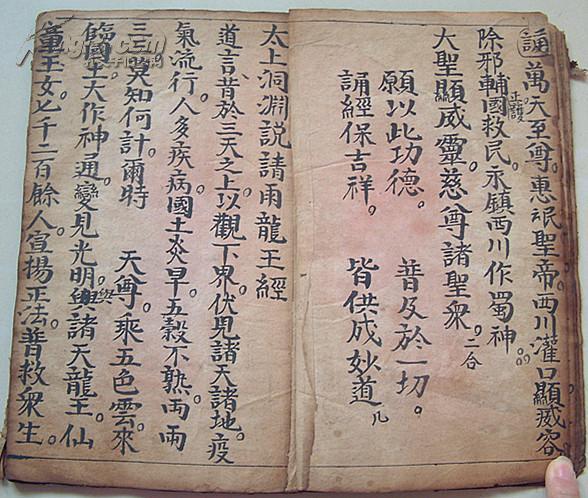 誦一萬天至尊。惠泯聖帝。西川灌口顯威容
除邪輔國正護救民。永鎮西川作蜀神。二合
大聖顯威靈。慈尊諸聖衆。
願以此功德。 普及於一切。
誦經保吉祥。 皆供成妙道几
太上洞淵説請雨龍王經
道言昔於三天之上以觀下界。伏見諸天諸地。疫
氣流行人多疾病。國土炎旱。五穀不熟。両両
三三。莫知何計爾時 天尊乘五色雲。來
臨國土大作神通。變見光明。與諸天龍王。仙
童玉女七千二百餘人。宣揚正法。普救衆生。